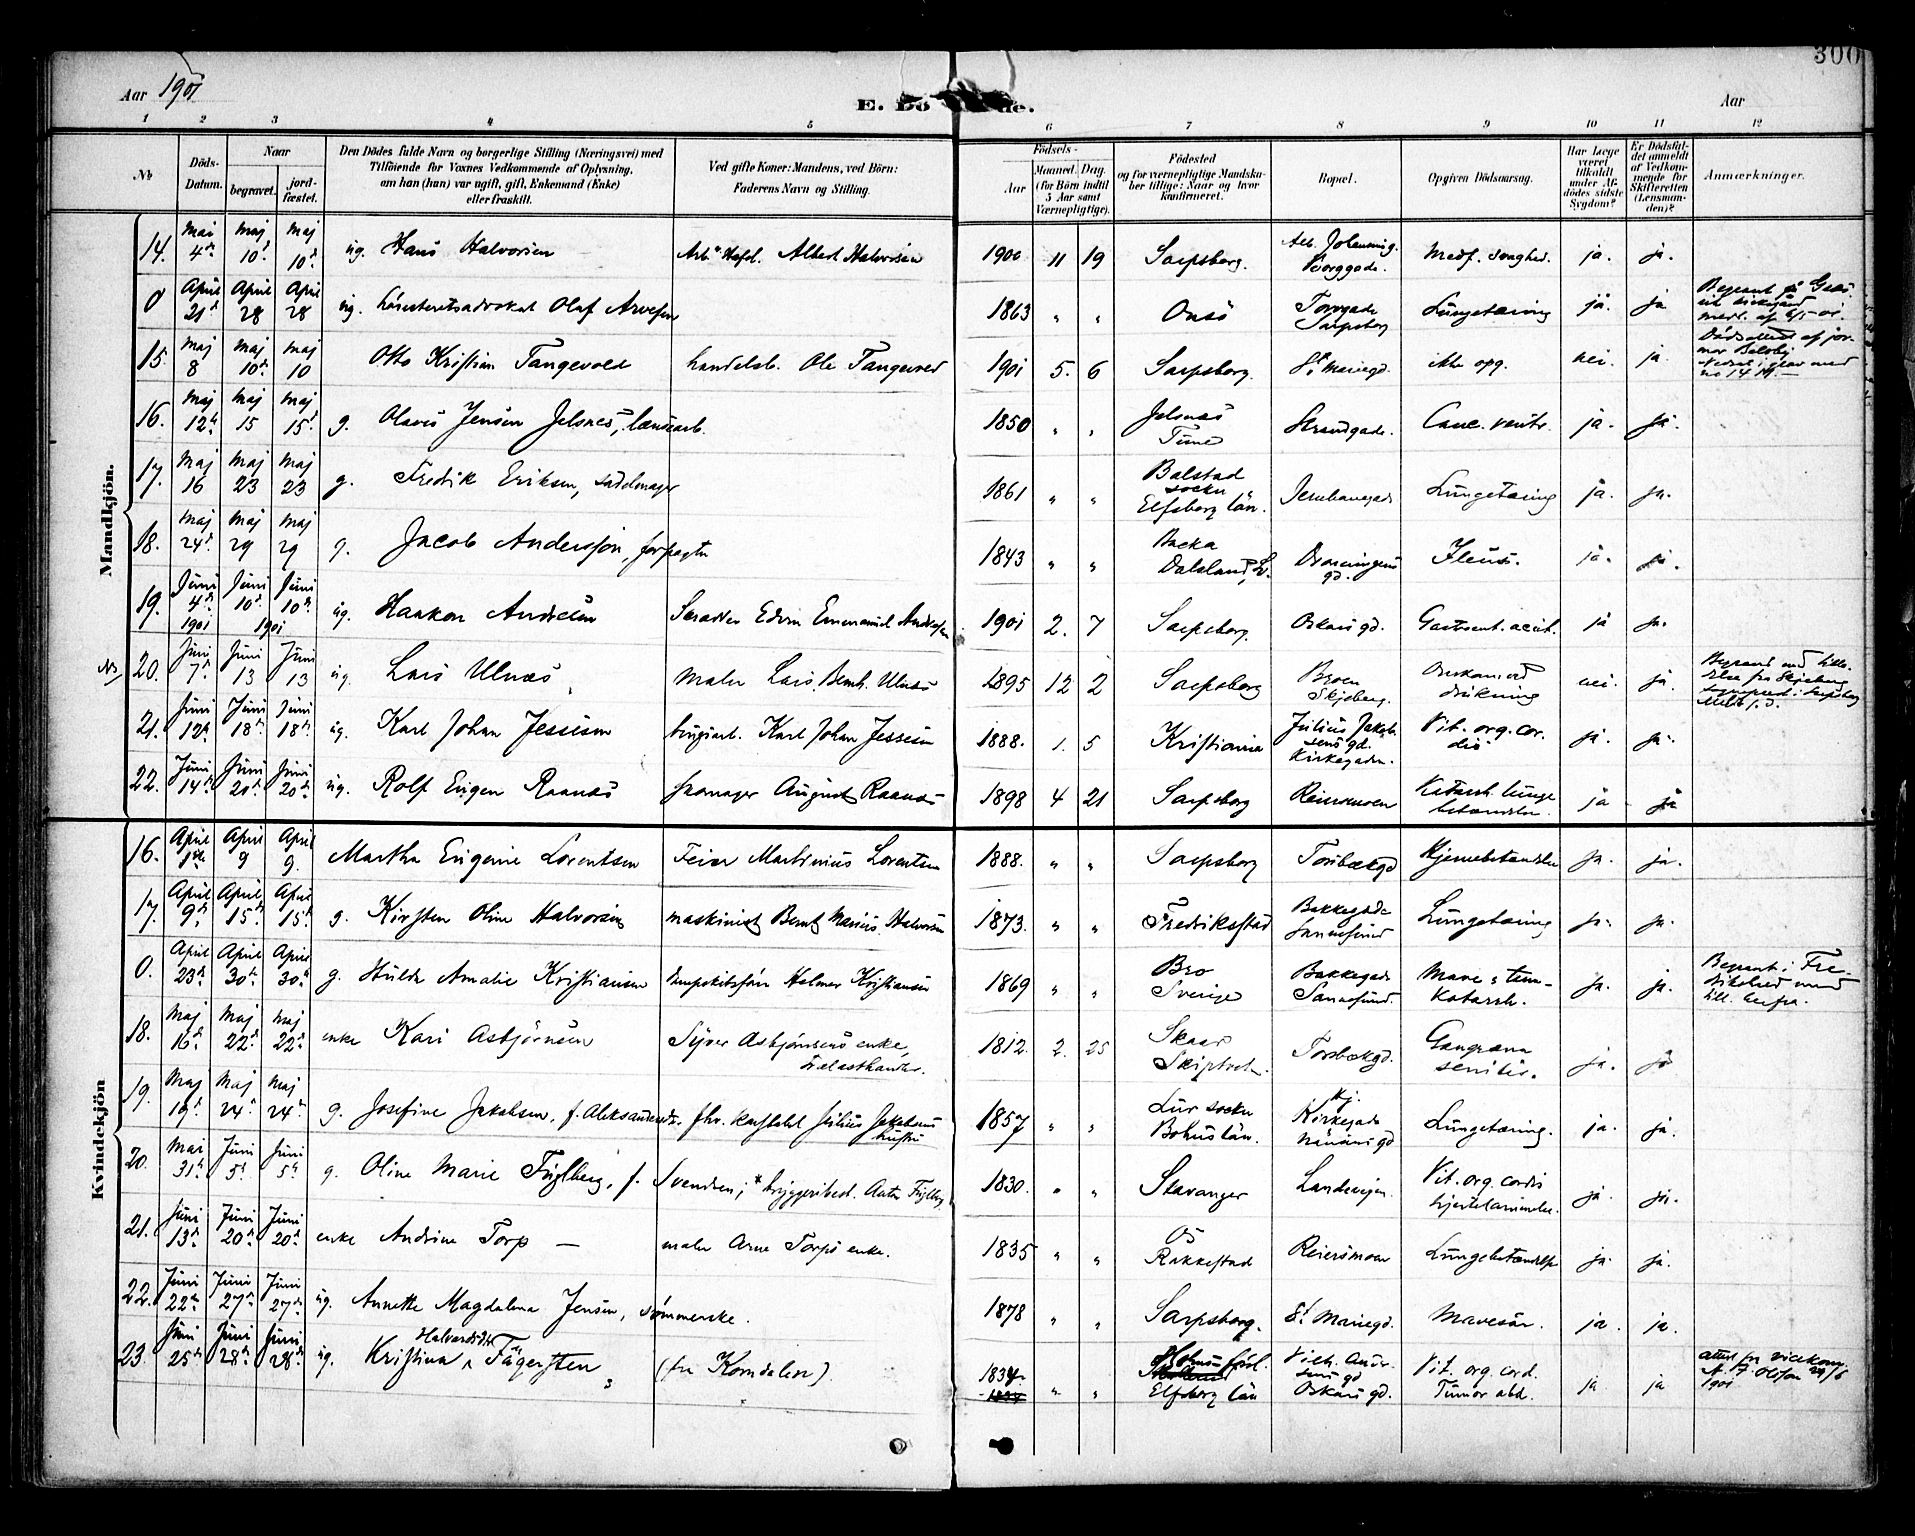 300
Aar 1901
E. Dö de.
Aar
1 2 3 4 5 6 7 8 9 10 11 12
No
Döds-Datum.
Naar
begravet.
jord-fæstet.
Den Dödes fulde Navn og borgerlige Stilling (Næringsvei) med
Tilföiende for Voxnes Vedkommende af Oplysning,
om han (hun) var ugift, gift, Enkemand (Enke)
eller fraskilt.
Ved gifte Koner: Mandens, ved Börn:
Faderens Navn og Stilling.
Födsels-
Aar
Maaned. Dag.
(for Börn indtil
5 Aar samt
Værnepligtige).
Födested
og for værnepligtige Mandska-
ber tillige: Naar og hvor
konfirmeret.
Bopæl.
Opgiven Dödsaarsag.
Har Læge
været
tilkaldt
under Af-
dödes sidste
Sygdom?
Er Dödsfal-
det anmeldt
af Vedkom-
mende for
Skifteretten
(Lensman-
den)?
Anmærkninger.
Mandkjön.
14. Mai 4de Maj 10d Maj 10d. ug. Hans Halvorsen Arb. Albert Halvorsen 1900 11 19 Sarpsborg. Borggade. Medf. svaghed. ja. ja.
0 April 21d April 28 April 28 ug. Overretsadvokat Olaf Arvesen 1863 " " Onsö Torvgade Sarpsborg Lungetæring ja. ja
15. Maj 8 Maj 10d Maj 10 Otto Kristian Tangevold handelsb. Ole Tangevold 1901 5. 6 Sarpsborg. St Mariegd. ikke opg. nei. ja. Dödsattest af jor-
mor
no 14
16. Maj 12te Maj 15 Maj 15d g. Olaves Jensen Jelsnes, lænsearb. 1850 " " Jelsnæs Tune Strandgade. Canc. ventr. ja. ja.
17. Maj 16 Maj 23 Maj 23 g. Fredrik Eriksen, sadelmager 1861 " " Bolstad socken Elfsborg län. Jernbanegade Lungetæring ja. ja.
18. Maj 24d. Maj 29 Maj 29 g. Jacob Andersson, forpagter 1843 " " Backa Dalsland, S. Dronningens gd. Ileus. ja. ja.
19. Juni 4d. 1901 Juni 10d. 1901 Juni 10d. ug. Haakon Andresen Skrædder Edvin Emmanuel Andresen 1901 2. 7 Sarpsborg. Oskars gd. Gastroent. acut. ja ja.
20. Juni 7d Juni 13 Juni 13 ug. Lars Ulnæs Maler Lars Bernh. Ulnæs 1895 12 2 Sarpsborg Broen Skjeberg. drukning nei. ja. Begravet med tilla-
delse fra Skjeberg
21. Juni 12te Juni 18d Juni 18d ug. Karl Johan Jessesen brugsarb. Karl Johan Jessesen 1888. 1. 5 Kristiania Julius Jakob-
sens gd. Kirkegaden. Vit. org. cor-
dis ja. ja.
22. Juni 14d Juni 20d. Juni 20d. ug. Rolf Eugen Raanæs skomager August Raanæs 1898 4 21 Sarpsborg Reiersmoen Katarrh. lunge-
betændelse. ja ja
Kvindekjön
16. April 1ste April 9 April 9. Martha Eugenie Lorentsen Feier Martinius Lorentsen 1888. " " Sarpsborg Torsbækgd Hjernebetændelse ja. ja.
17. April 9d. April 15d. April 15d g. Kirsten Oline Halvorsen maskinist Bernt Marius Halvorsen 1873. " " Fredriksstad Bakkegade Sannesund Lungetæring ja. ja.
0. April 23d April 30te April 30te g. Hulda Amalie Kristiansen Halmer Kristiansen 1869 " " Bro Sverige Bakkegade Sannesund. Mave & tarm-
katarrh. ja. ja. Begravet i Fre-
drikstad
18. Maj 16d. Maj 22d. Maj 22d. enke Kari Asbjörnsen Syver Asbjörnsens enke, 1812. 2. 25 Skaar Skiptvet. Torsbækgd. Gangræna senilis. ja. ja
19. Maj 19d Maj 24d Maj 24d g. Josefine Jakobsen, f. Aleksandersdtr. fhv. Julius Jakobsens hustru 1857 " " Lur socken Bohus län. Kirkegade gd Lungetæring. ja. ja.
20. Mai 31te Juni 5te Juni 5te g. Oline Marie Fuglberg, f. Svendsen; bryggeribest. Fuglberg 1830. " " Stavanger Landeveien. Vit. org. cordis hjertelammelse. ja. ja.
21. Juni 13d Juni 20d Juni 20d. enke Andrine Torp — maler Arne Torps enke. 1835 " " Os Rakkestad Reiersmoen Lungebetændelse ja. ja.
22. Juni 22d Juni 27d Juni 27d ug. Annette Magdalena Jensen, sömmerske. 1878 " " Sarpsborg. St Mariegd. Mavesår. ja. ja.
23. Juni 25d Juni 28d Juni 28d. ug. Kristina Halvardsdtr Fägersten (fra Korndalen). 1834 " " Elfsborg län Oskars gd. Vit. org. cord. Tumor abd. ja ja attest fra vicekons.
Olsson 29/6
1901